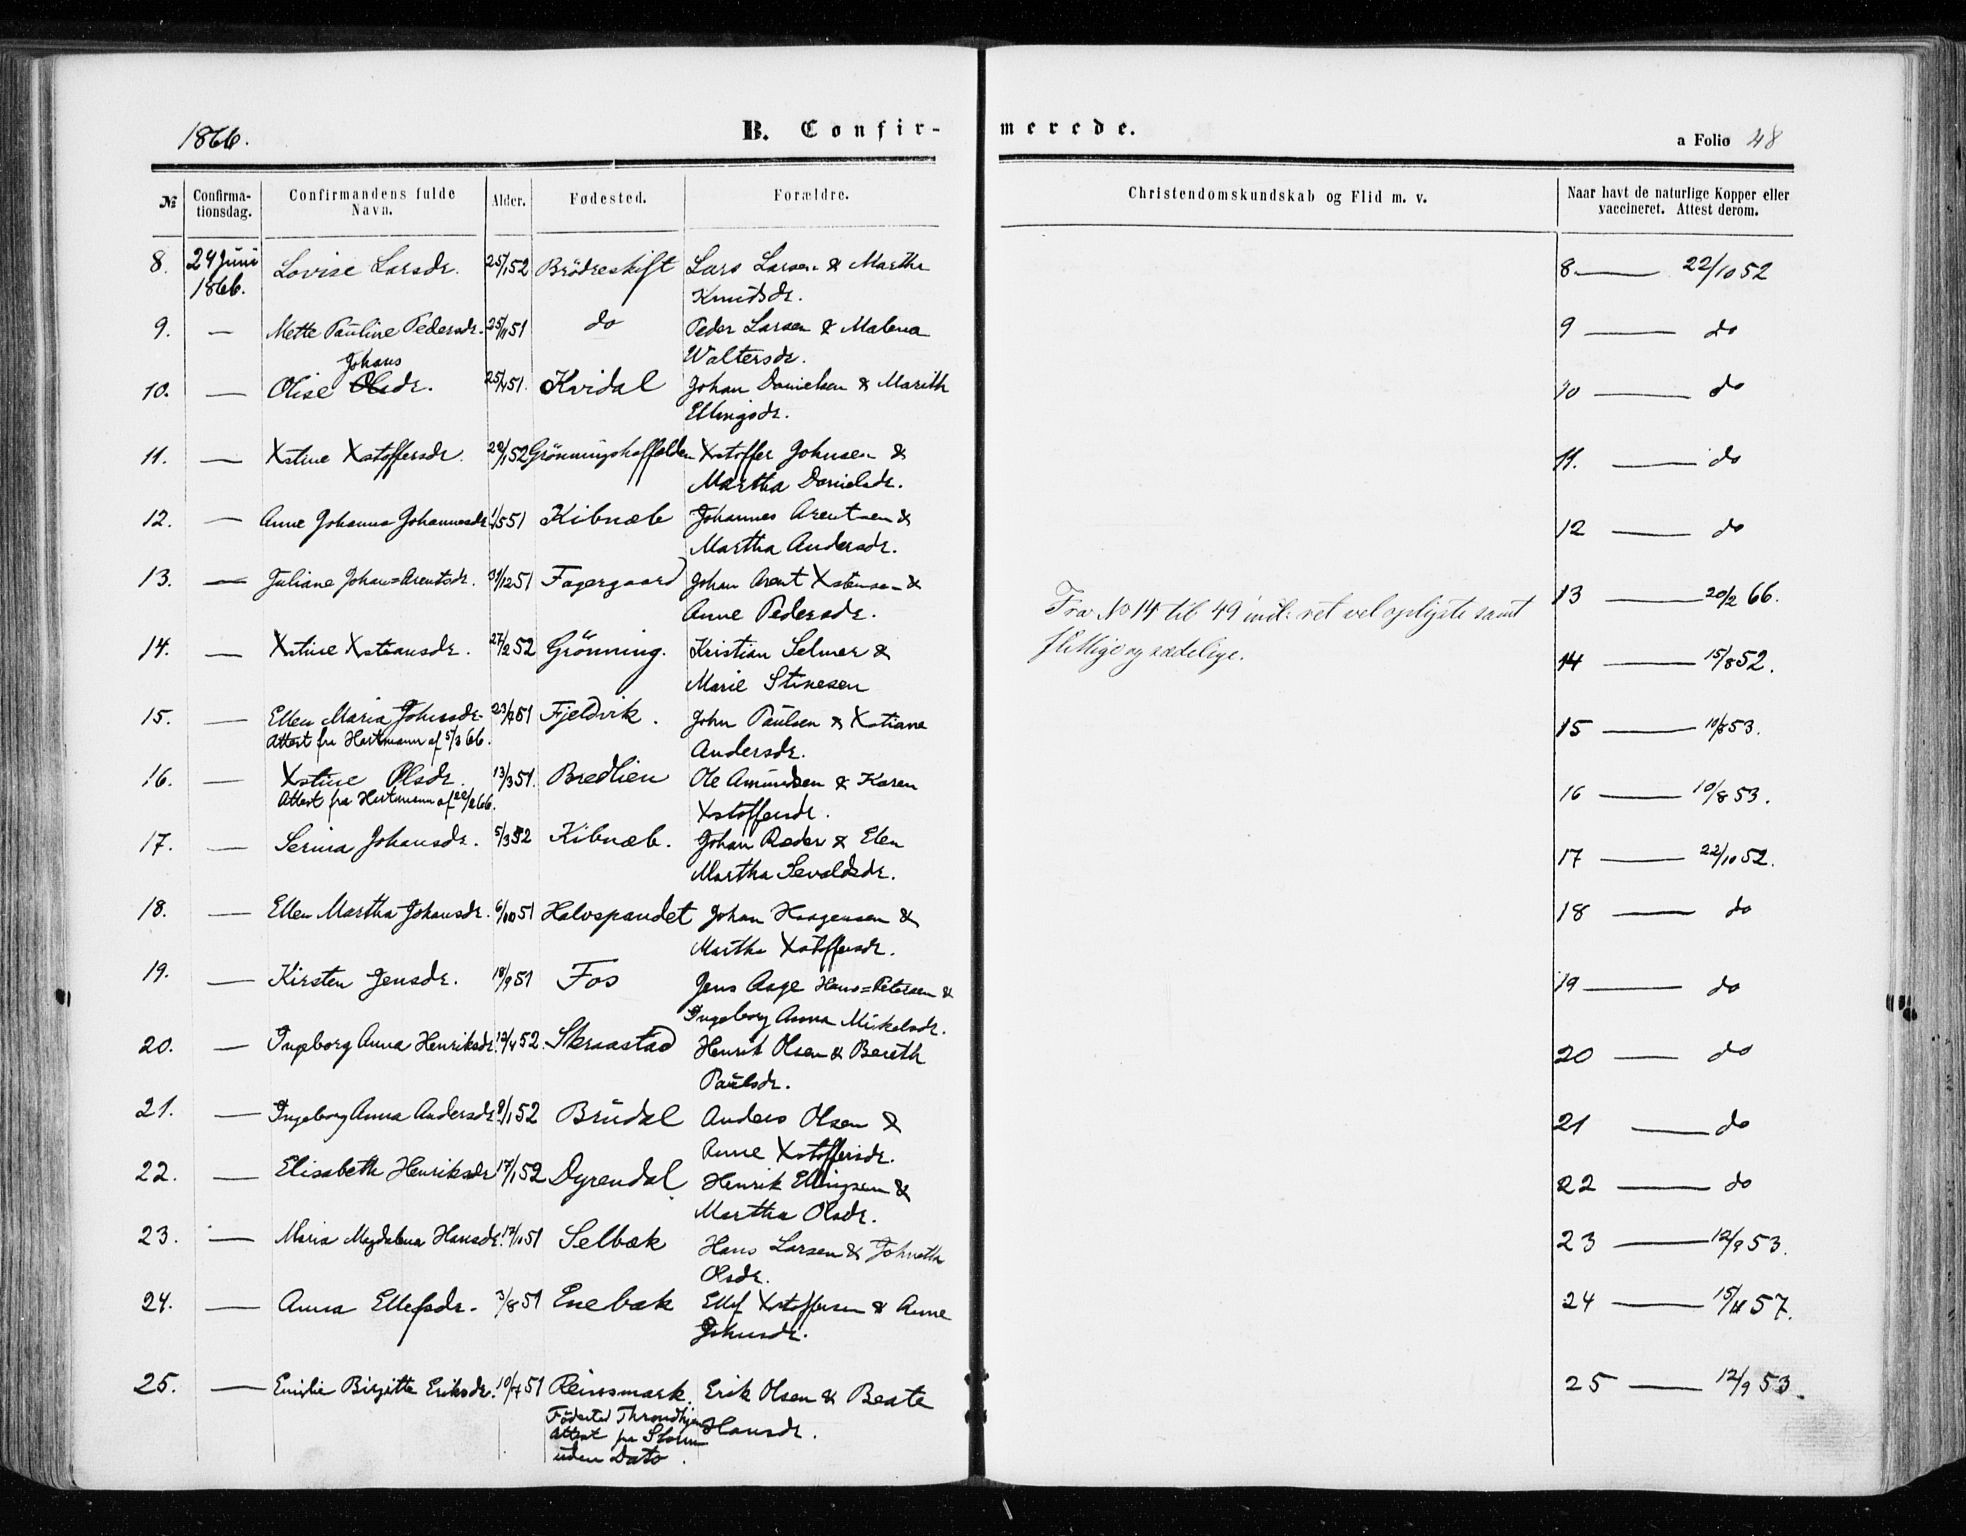 1866.
B. Confir-
merede.
a Folio 48
№
Confirma-
tionsdag.
Confirmandens fulde
Navn.
Alder.
Fødested.
Forældre.
Christendomskundskab og Flid m. v.
Naar havt de naturlige Kopper eller
vaccineret. Attest derom.
8. 24 Juni Lovise Larsdr. 25/1 52 Brödreskift Lars Larsen & Martha
1866. Knudsdr.
9. — Mette Pauline Pedersdr. 25/11 51 do Peder Larsen & Malena
Waltersdr.
Johans
10. — Olise Olsdr. 51. Kvidal Johan Danielsen & Marith
Ellingsdr.
11. — Xstine Xstoffersdr. 52 Xstoffer Johnsen &
Martha Danielsdr.
12. — Anne Johanna Johannesdr. 1/5 51 Kibnæb Johannes Arentsen &
Martha Andersdr.
13. — Juliane Johan=Arentsdr. 31/12 51 Fagergaard Johan Arent Xstensen &
Anne Pedersdr.
14. — Xstine Xstiansdr. 27/2 52 Grönning. Kristian Selmer &
Marie Stinesen
15. — Ellen Maria Johnsdr. 51 Fjeldvik. John Paulsen & Xstiana
Attest fra Hartmann af 5/3 66. Andersdr.
16. — Xstine Olsdr. 13/3 51. Bredlien Ole Amundsen & Karen
Attest fra Hartmann af 22/2 66. Xstoffersdr.
17. — Serina Johansdr. 5/3 52 Kibnæb. Johan Ræder & Elen
Martha Sevaldsdr.
18. — Ellen Martha Johansdr. 6/10 51 Halvspandet Johan Haagensen &
Martha Xstoffersdr.
19. — Kirsten Jensdr. 18/9 51 Fos Jens Aage Hans=Petersen &
Ingeborg Anna Mikelsdr.
20. — Ingeborg Anna Henriksdr. 12/4 52. Skraastad Henrik Olsen & Bereth
Paulsdr.
21. — Ingeborg Anna Andersdr. 9/1 52 Brudal Anders Olsen &
Anne Xstoffersdr.
22. — Elisabeth Henriksdr 17/1 52 Dyrendal Henrik Ellingsen &
Martha Olsdr.
23. — Maria Magdalena Hansdr. 17/10 51 Selbæk Hans Larsen & Johneth
Olsdr.
24. — Anna Ellefsdr. 3/8 51 Enebak Ellef Xstoffersen & Anne
Johnsdr.
25. — Emilie Birgitte Eriksdr. 10/7 51 Reinsmark. Erik Olsen & Beate
Födested Throndhjem Hansdr.
Attest fra Storm
uden Dato.
Fra No 14 til 49 incl: ret vel oplyste samt
flittige og sædelige.
8 — 22/10 52
9 — do
10 — do
11. — do
12 — do
13 — 20/2 66.
14 — 15/8 52.
15 — 10/8 53.
16 — 10/8 53.
17 — 22/10 52.
18 — do
19 — do
20 — do
21 — do
22 — do
23 — 12/9 53.
24 — 15/11 57.
25 — 12/9 53.